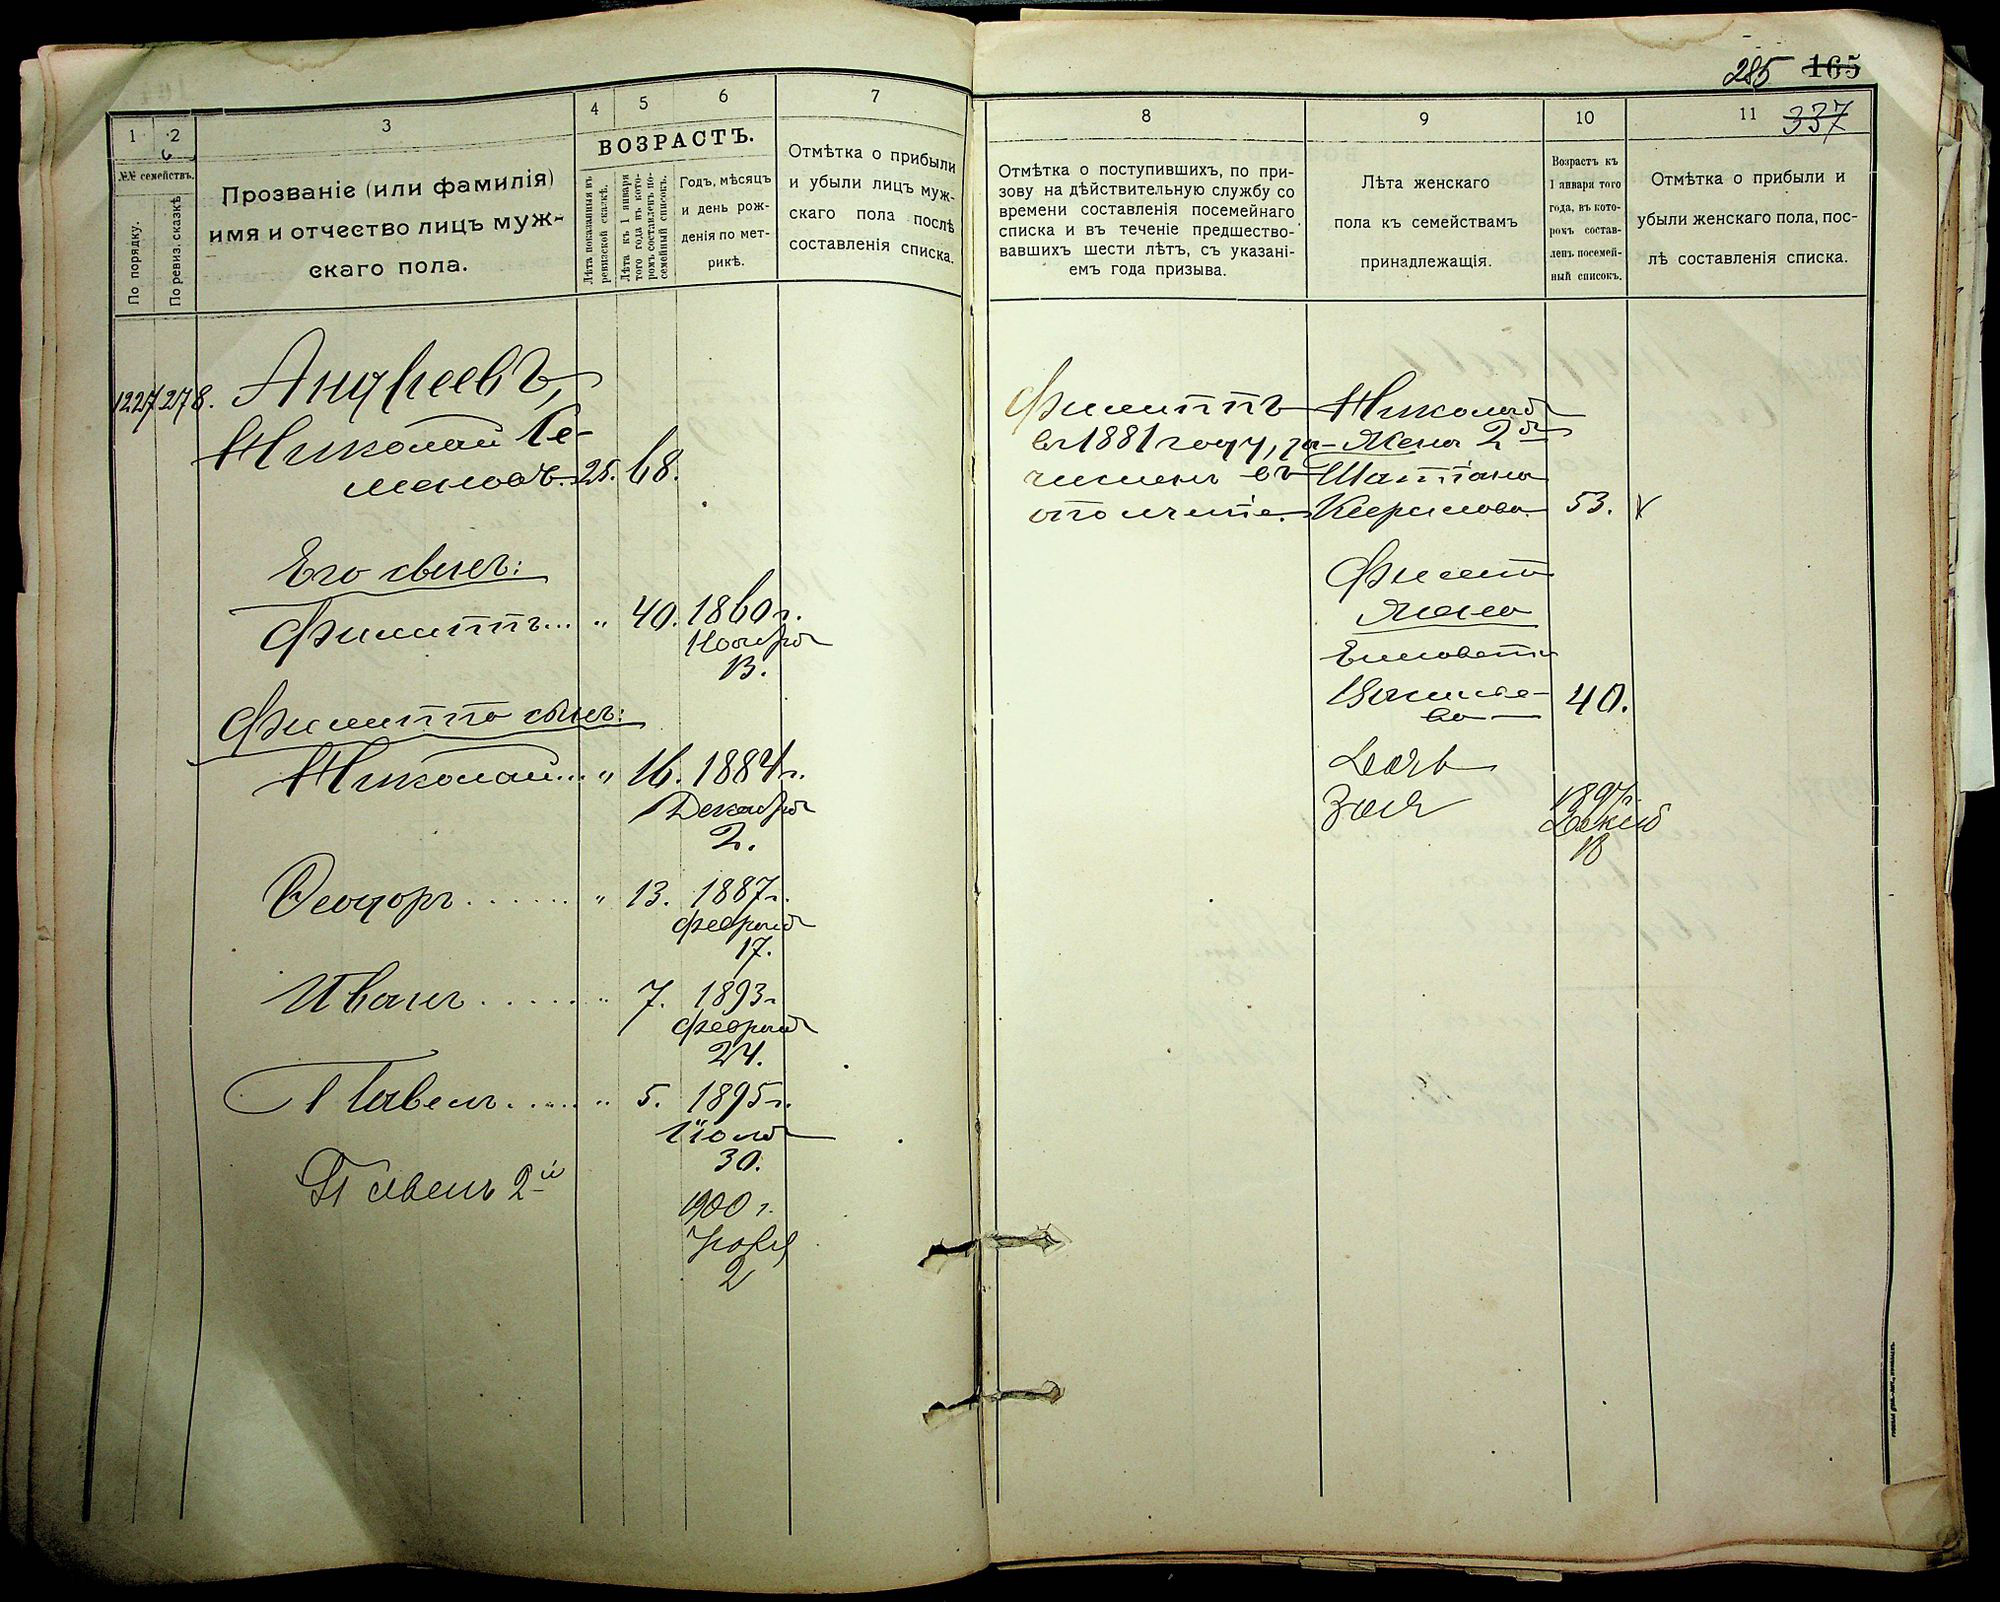 285 165
337
1 2 3 4 5 6 7
№№ семействъ.
По порядку.
По ревиз. сказкѣ
Прозваніе (или фамилія)
имя и отчество лицъ муж-
скаго пола.
ВОЗРАСТЪ.
Лѣта показанныя въ
ревизской сказкѣ.
Лѣта къ 1 января
того года въ кото-
ромъ составленъ по-
семейный списокъ.
Годъ, мѣсяцъ
и день рож-
денія по мет-
рикѣ.
Отмѣтка о прибыли
и убыли лицъ муж-
скаго пола послѣ
составленія списка.
1227 278. Андреевъ,
Николай Се-
меновъ. 25. 68.
Его сынъ:
Филиппъ... „ 40. 1860 г.
Ноября
13.
Филиппа сын:
Николай... „ 16. 1884 г.
Декабря
2.
Ѳеодоръ....... „ 13. 1887 г.
Февраля
17.
Иванъ....... „ 7. 1893 г.
Февраля
24.
Павелъ...... „ 5. 1895 г.
Іюля
30.
Павелъ 2й 1900 г.
2
8 9 10 11
Отмѣтка о поступившихъ, по при-
зову на дѣйствительную службу со
времени составленія посемейнаго
списка и въ теченіе предшество-
вавшихъ шести лѣтъ, съ указані-
емъ года призыва.
Лѣта женскаго
пола къ семействамъ
принадлежащія.
Возрастъ къ
1 января того
года, въ кото-
ромъ состав-
ленъ посемей-
ный списокъ.
Отмѣтка о прибыли и
убыли женскаго пола, пос-
лѣ составленія списка.
Филиппъ
въ 1881 году, за-
численъ въ
ополченіе.
Николая
Жена 2я
Кирилова 53.
Филип
жена
Елизавета
Василье-
ва 40.
Дочь
Зоя 1897 г.
18